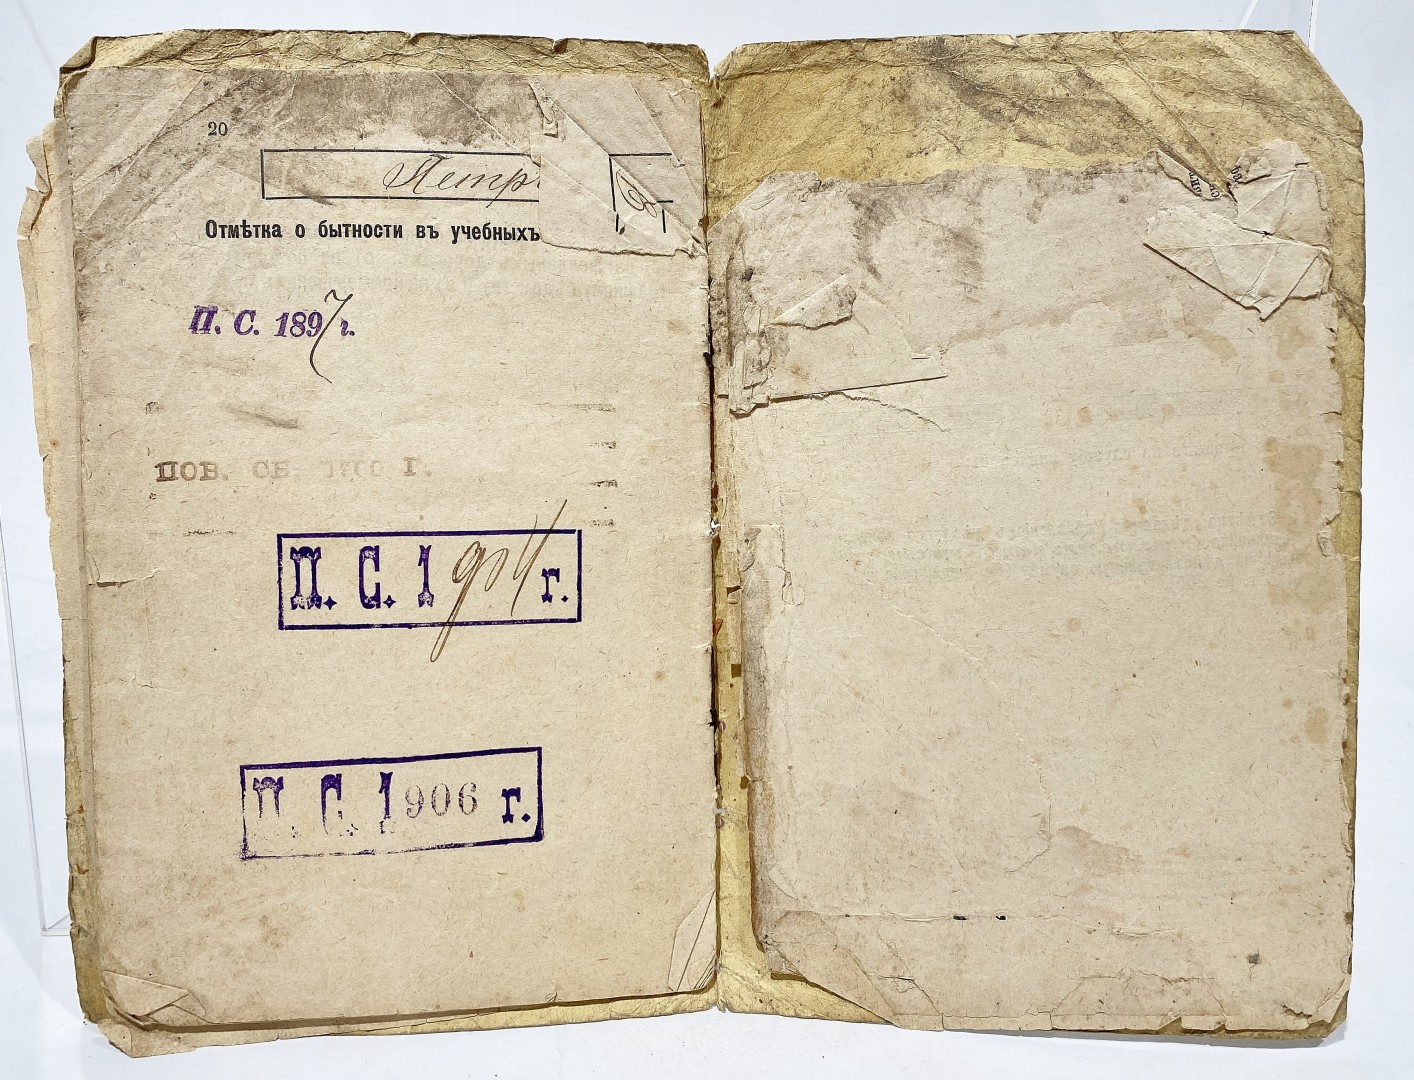 20
Петр
8
Отмѣтка о бытности въ учебныхъ
П. С. 1897 г.
ПОВ. СБ. Г.
П. С. 1904 г.
П. С. 1906 г.